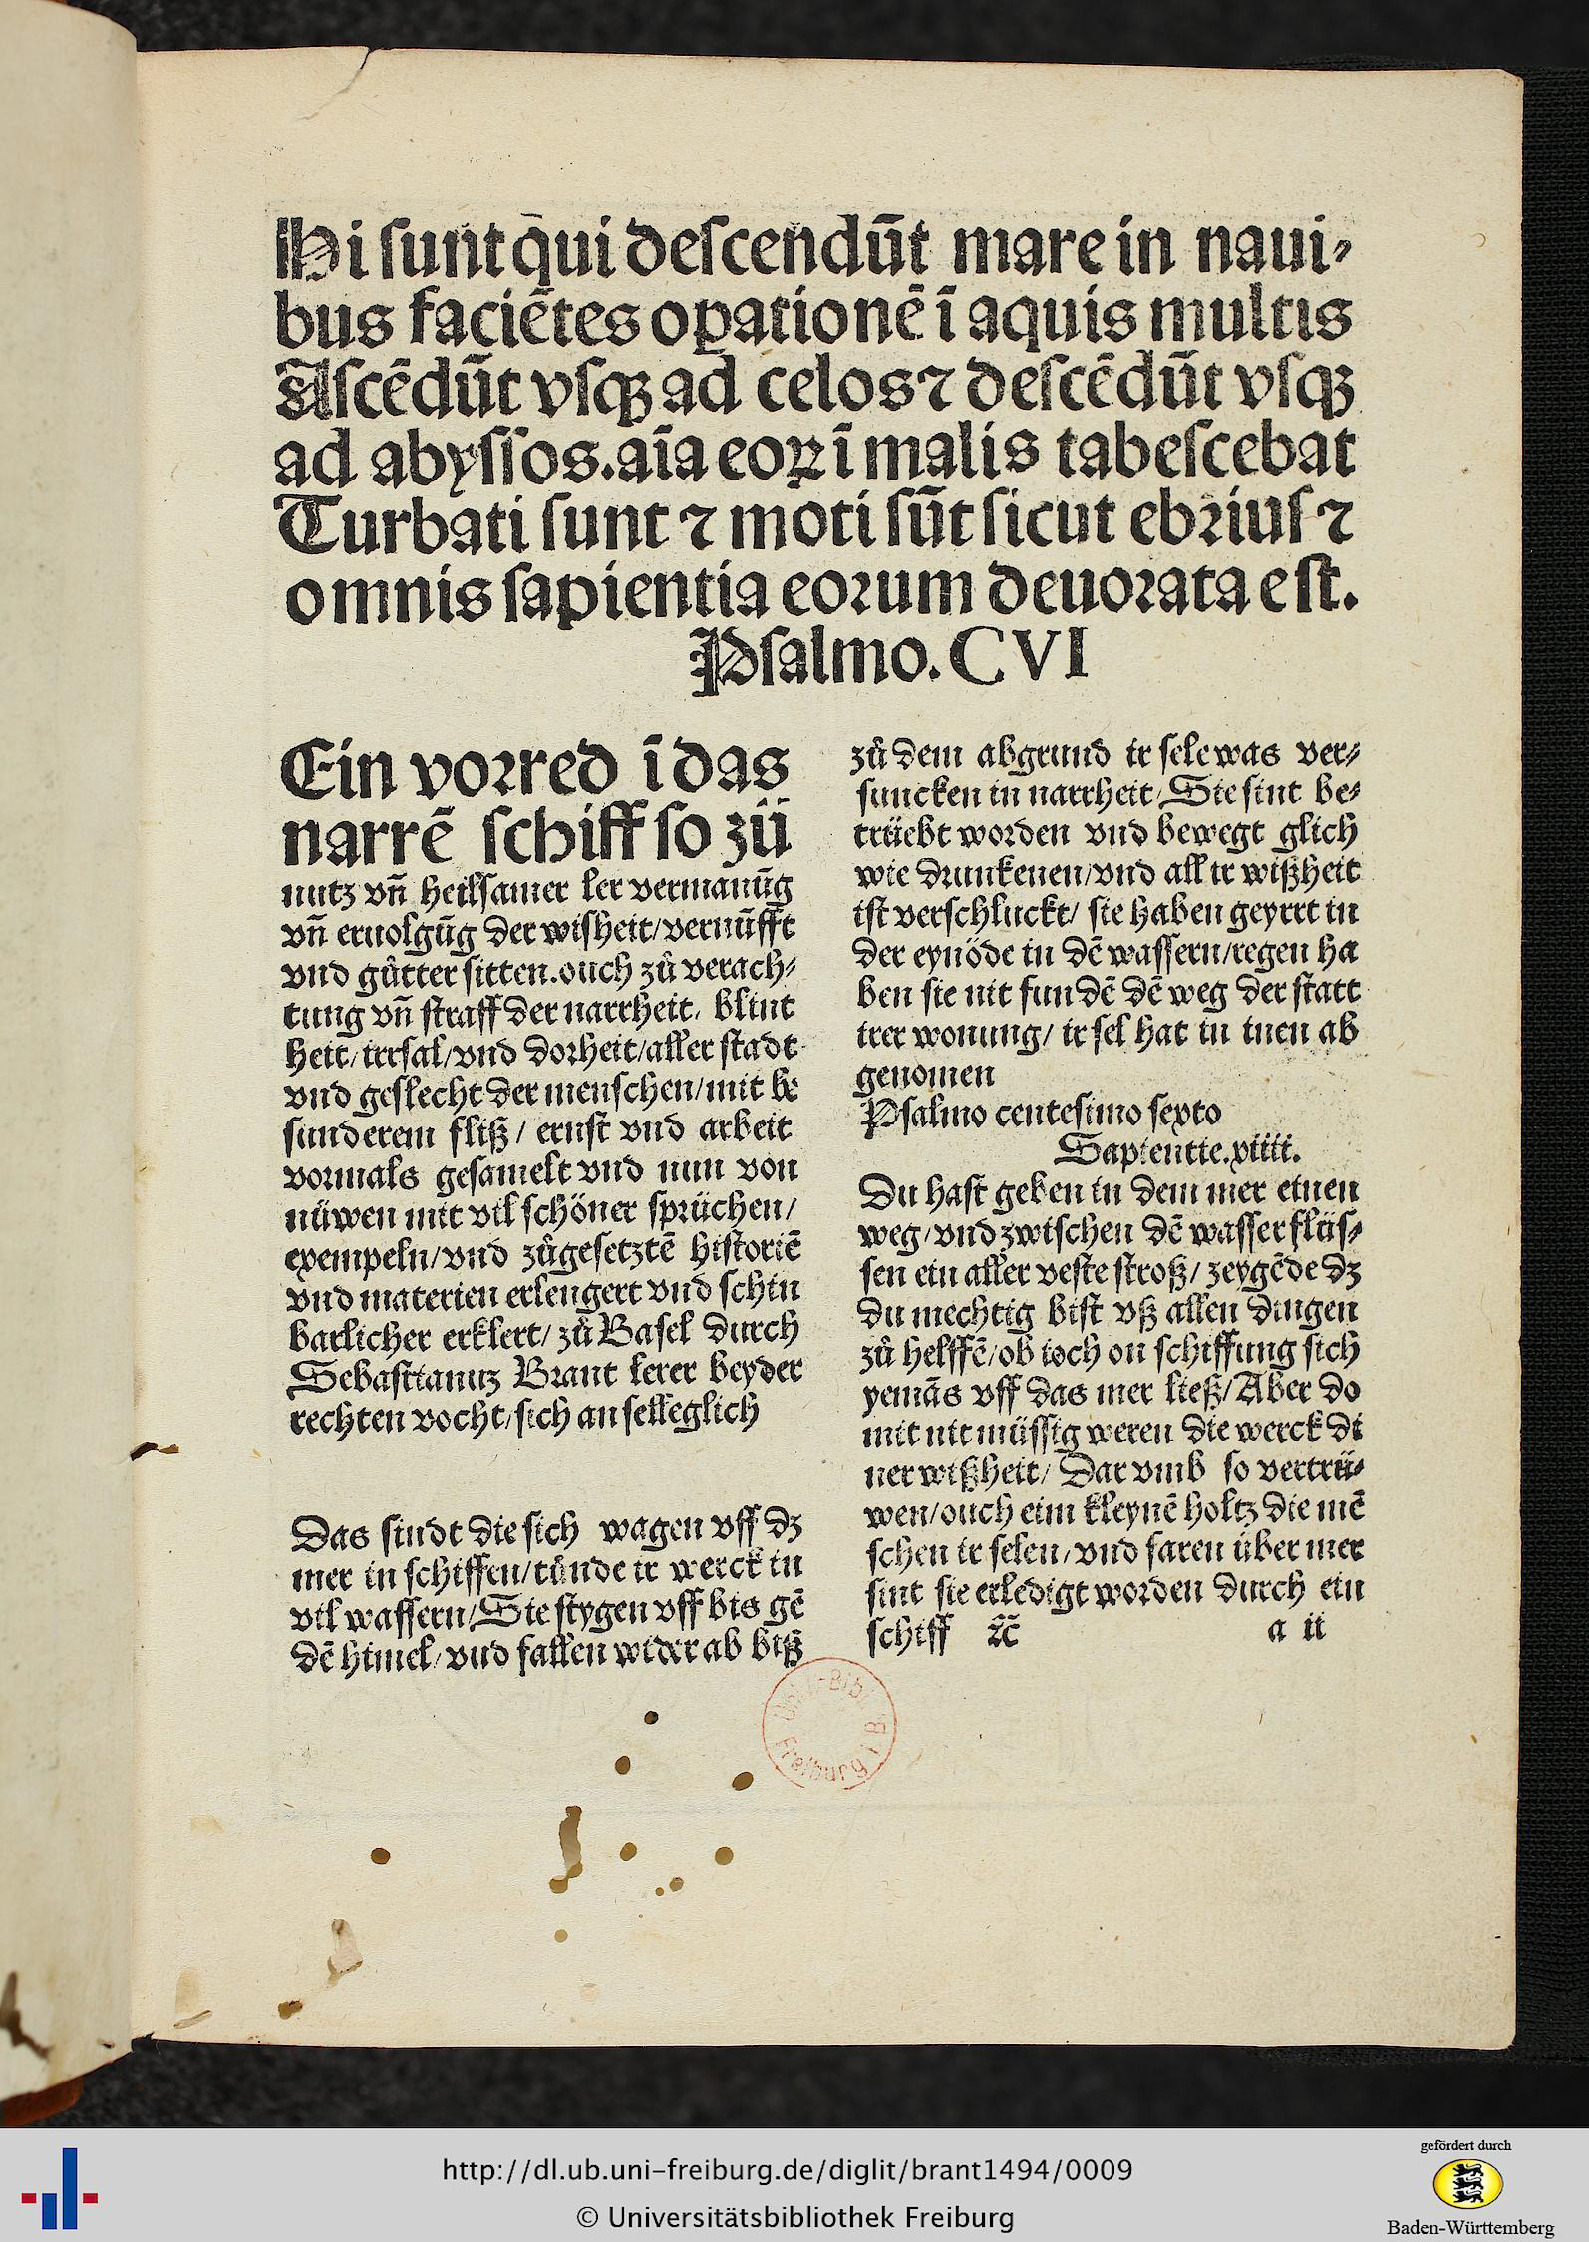 Hi ſunt qui deſcendūt mare in naui⸗
bus faciētes oꝑationē ī aquis multis
Aſcēdūt vſqꝫ ad celos ⁊ deſcēdūt vſqꝫ
ad abyſſos. aīa eoꝝ ī malis tabeſcebat
Turbati ſunt ⁊ moti ſūt ſicut ebꝛiuſ ⁊
omnis ſapientia eoꝛum deuoꝛata eſt.
Pſalmo. CVI
Ein voꝛred ī das
narrē ſchiff ſo zü
nutz vn̄ heilſamer ler vermanūg
vn̄ eruolgūg der wiſheit/vernūfft
vnd gůtter ſitten. ouch zů verach⸗
tung vn̄ ſtraff der narrheit, blint
heit/irrſal/vnd doꝛheit/aller ſtadt
vnd geſlecht der menſchen/mit be
ſunderem fliß/ ernſt vnd arbeit
voꝛmals geſamelt vnd nun von
nüwen mit vil ſchöner ſpꝛüchen/
exempeln/vnd zůgeſetztē hiſtoriē
vnd materien erlengert vnd ſchin
barlicher erklert/ zů Baſel durch
Sebaſtianuꝫ Bꝛant lerer beyder
rechten vocht/ſich an ſelleglich
Das ſindt die ſich wagen vff dꝫ
mer in ſchiffen/tůnde ir werck in
vil waſſern/Sie ſtygen vff bis gē
dē himel/vnd fallen wider ab biß
zů dem abgrund ir ſele was ver⸗
ſuncken in narrheit/Sie ſint be⸗
trüebt woꝛden vnd bewegt glich
wie dꝛunkenen/vnd all ir wißheit
iſt verſchluckt/ ſie haben geyrrt in
der eynöde in dē waſſern/regen ha
ben ſie nit fundē dē weg der ſtatt
irer wonung/ ir ſel hat in inen ab
genomen
Pſalmo centeſimo ſexto
Sapientie. xiiii.
Du haſt geben in dem mer einen
weg/vnd zwiſchen dē waſſer flüſ⸗
ſen ein aller veſte ſtroß/ zeygēde dꝫ
du mechtig biſt vß allen dingen
zů helffē/ob ioch on ſchiffung ſich
yemās vff das mer ließ/Aber do
mit nit müſſig weren die werck di
ner wißheit/ Dar vmb ſo vertrü⸗
wen/ouch eim kleynē holtz die mē
ſchen ir ſelen/vnd faren über mer
ſint ſie erledigt woꝛden durch ein
ſchiff ⁊c̄ a ii
Bibl
Freiburg i B
http://dl.ub.uni-freiburg.de/diglit/brant1494/0009
© Universitätsbibliothek Freiburg
gefördert durch
Baden-Württemberg